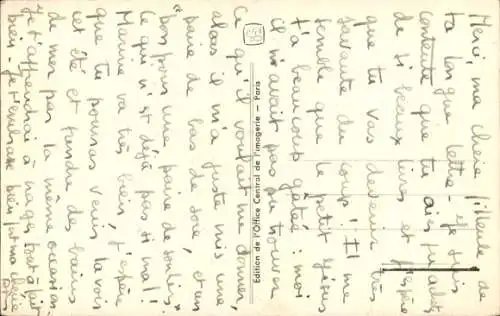 Merci, ma chérie filleule de
ta longue lettre - je suis
contente que tu aies pu acheter
de si beaux livres et j'espère
que tu vas devenir très
savante du coup! Il me
semble que le petit Jésus
t'a beaucoup gâtée : moi
il n'avait pas pu trouver
Edition de l'Office Central de l'Imagerie — Paris
Ce qu'il voulait me donner,
alors il m'a juste mis une
paire de bas de soie, et un
"bon pour une paire de souliers"
ce qui n'est déjà pas si mal!
Marine va très bien, j'espère
que tu pourras venir la voir
cet été et prendre des bains
de mer par la même occasion -
Je t'apprendrai à nager tout à fait
bien - Je t'embrasse bien ma chérie